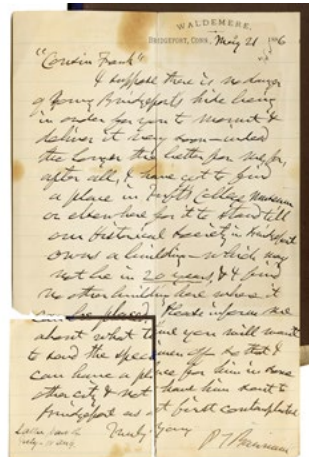 WALDEMERE,
BRIDGEPORT, CONN. May 21 1886
"Cousin Frank"
I suppose there is no danger
of Young Bridgeport's hide being
in order for you to mount &
deliver it very soon - indeed
the longer the better for me, for,
after all, I have got to find
a place in Tufts College Museum
or elsewhere for it to stand till
our Historical Society in Bridgeport
owns a building - which may
not be in 20 years, & I find
no other building here where it
can be placed. Please inform me
about what time you will want
to send the specimen off so that I
can have a place for him in some
other city & not have him sent to
Bridgeport as at first contemplated
Truly Yours
P T Barnum